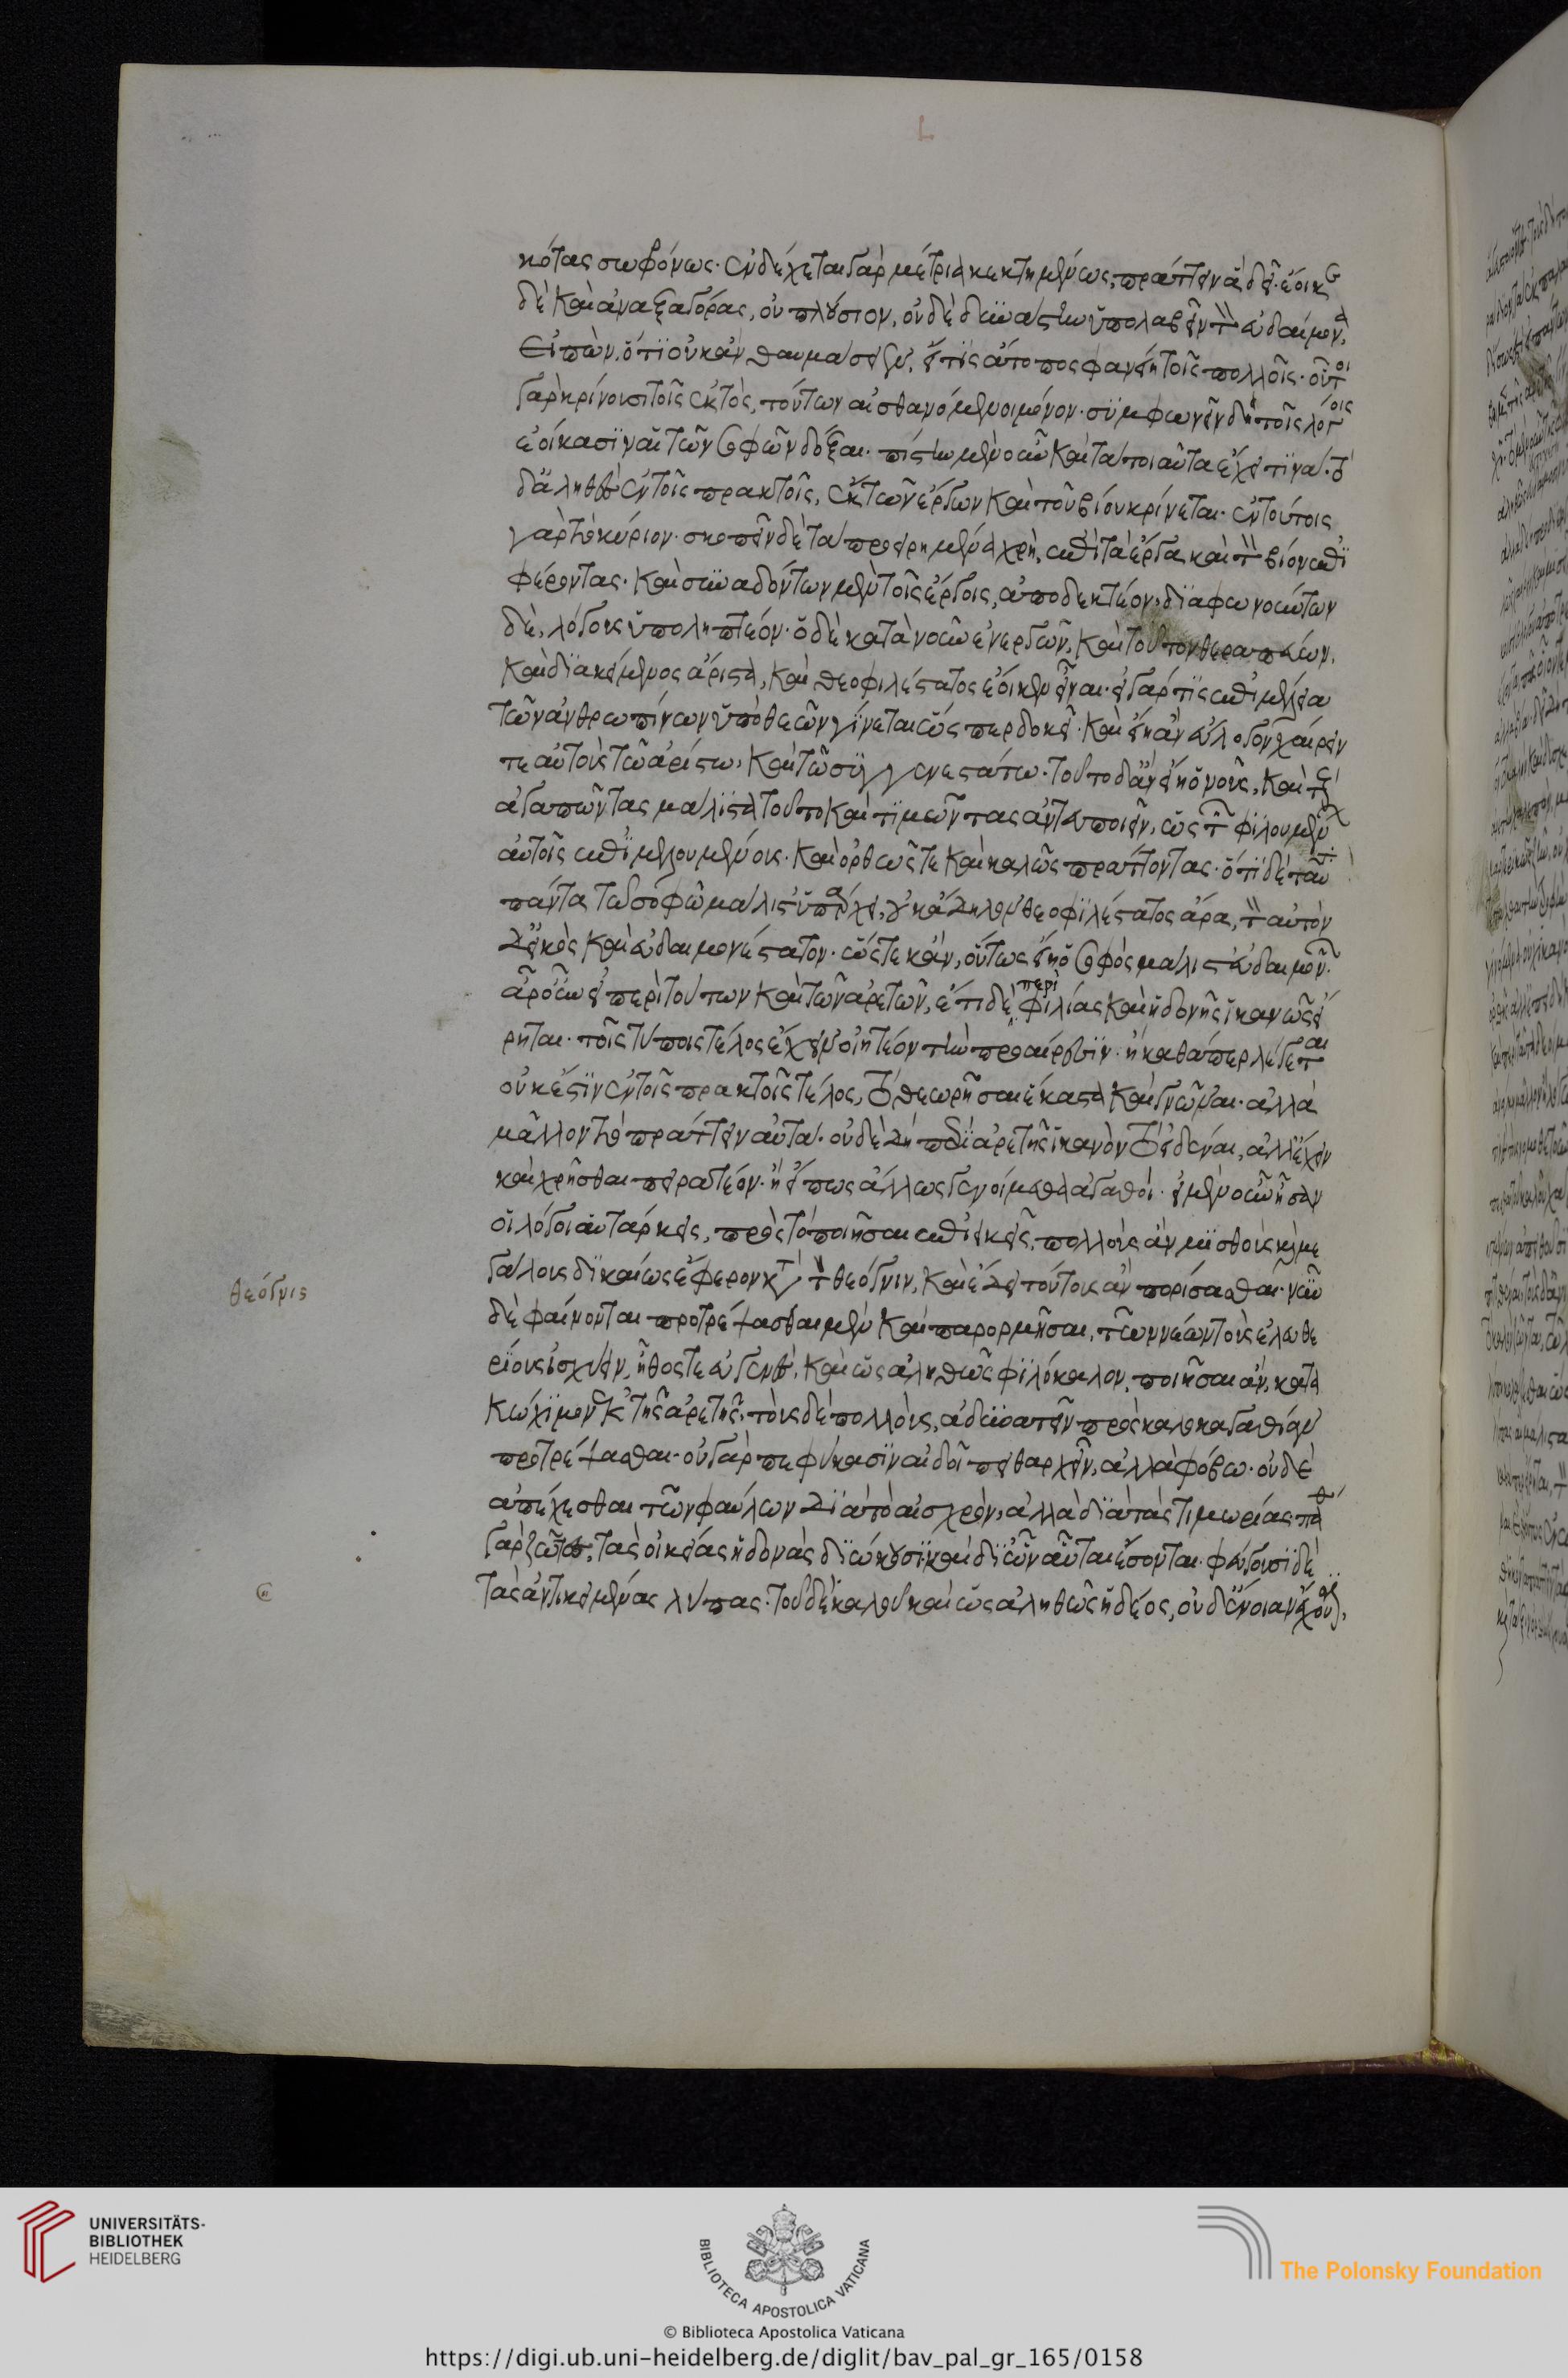 κότας σωφρόνως· ἐνδέχεται γὰρ μέτρια κεκτημένους, πράττειν ἃ δεῖ· ἔοικε
δὲ καὶ ἀναξαγόρας, οὐ πλούσιον, οὐδὲ δυνάστην ὑπολαβεῖν τὸν εὐδαίμονα,
εἰπὼν, ὅτι οὐκ ἂν θαυμάσειεν, εἴ τις ἄτοπος φανείη τοῖς πολλοῖς· οὗτοι
γὰρ κρίνουσι τοῖς ἐκτὸς, τούτων αἰσθανόμενοι μόνον· συμφωνεῖν δὴ τοῖς λόγοις
ἐοίκασιν αἱ τῶν σοφῶν δόξαι· πίστιν μὲν οὖν καὶ τὰ τοιαῦτα ἔχει τινα· τὸ
δ' ἀληθὲς ἐν τοῖς πρακτοῖς, ἐκ τῶν ἔργων καὶ τοῦ βίου κρίνεται· ἐν τούτοις
γὰρ τὸ κύριον· σκοπεῖν δὲ τὰ προειρημένα χρὴ, ἐπὶ τὰ ἔργα καὶ τὸν βίον ἐπι
φέροντας· καὶ συναδόντων μὲν τοῖς ἔργοις, ἀποδεκτέον, διαφωνούντων
δὲ, λόγους ὑποληπτέον· ὁ δὲ κατὰ νοῦν ἐνεργῶν, καὶ τοῦτον θεραπεύων,
καὶ διακείμενος ἄριστα, καὶ θεοφιλέστατος ἔοικεν εἶναι· εἰ γάρ τις ἐπιμέλεια
τῶν ἀνθρωπίνων ὑπὸ θεῶν γίνεται ὥσπερ δοκεῖ· καὶ εἴη ἂν εὔλογον χαίρειν
τε αὐτοὺς τῷ ἀρίστῳ, καὶ τῷ συγγενεστάτῳ· τοῦτο δ' ἂν εἴη ὁ νοῦς, καὶ τοὺς
ἀγαπῶντας μάλιστα τοῦτο καὶ τιμῶντας ἀντευποιεῖν, ὡς τῶν φίλων
αὐτοῖς ἐπιμελουμένους· καὶ ὀρθῶς τε καὶ καλῶς πράττοντας· ὅτι δὲ ταῦτα
πάντα τῷ σοφῷ μάλιστ' ὑπάρχει, οὐκ ἄδηλον· θεοφιλέστατος ἄρα, τὸν αὐτὸν
δ' εἰκὸς καὶ εὐδαιμονέστατον· ὥστε κἂν, οὕτως εἴη ὁ σοφὸς μάλιστ' εὐδαίμων·
ἆρ' οὖν εἰ περὶ τούτων καὶ τῶν ἀρετῶν, ἔτι δὲ περὶ φιλίας καὶ ἡδονῆς ἱκανῶς εἴ
ρηται· τοῖς τύποις τέλος ἔχειν οἰητέον τὴν προαίρεσιν· ἢ καθάπερ λέγεται
οὐκ ἔστιν ἐν τοῖς πρακτοῖς τέλος, τὸ θεωρῆσαι ἕκαστα καὶ γνῶναι· ἀλλὰ
μᾶλλον τὸ πράττειν αὐτά· οὐδὲ δὴ περὶ ἀρετῆς ἱκανὸν τὸ εἰδέναι, ἀλλ' ἔχειν
καὶ χρῆσθαι πειρατέον· ἢ εἴ πως ἄλλως γενοίμεθα ἀγαθοί· εἰ μὲν οὖν ἦσαν
οἱ λόγοι αὐτάρκεις, πρὸς τὸ ποιῆσαι ἐπιεικεῖς, πολλοὺς ἂν μισθοὺς καὶ με
γάλους δικαίως ἔφερον κατὰ τὸν θεόγνιν, καὶ ἔδει τούτους ἂν πορίσασθαι· νῦν
δὲ φαίνονται προτρέψασθαι μὲν καὶ παρορμῆσαι, τῶν νέων τοὺς ἐλευθε
ρίους ἰσχύειν, ἦθός τε εὐγενὲς, καὶ ὡς ἀληθῶς φιλόκαλον, ποιῆσαι ἂν, κατα
κώχιμον ἐκ τῆς ἀρετῆς, τοὺς δὲ πολλοὺς, ἀδυνατεῖν πρὸς καλοκαγαθίαν
προτρέψασθαι· οὐ γὰρ πεφύκασιν αἰδοῖ πειθαρχεῖν, ἀλλὰ φόβῳ· οὐδὲ
ἀπέχεσθαι τῶν φαύλων διὰ τὸ αἰσχρὸν, ἀλλὰ διὰ τὰς τιμωρίας· πάθει
γὰρ ζῶντες, τὰς οἰκείας ἡδονὰς διώκουσι καὶ δι' ὧν αὗται ἔσονται· φεύγουσι δὲ
τὰς ἀντικειμένας λύπας· τοῦ δὲ καλοῦ καὶ ὡς ἀληθῶς ἡδέος, οὐδ' ἔννοιαν ἔχουσιν,
θεόγνις
UNIVERSITÄTS-
BIBLIOTHEK
HEIDELBERG
BIBLIOTECA APOSTOLICA VATICANA
The Polonsky Foundation
© Biblioteca Apostolica Vaticana
https://digi.ub.uni-heidelberg.de/diglit/bav_pal_gr_165/0158